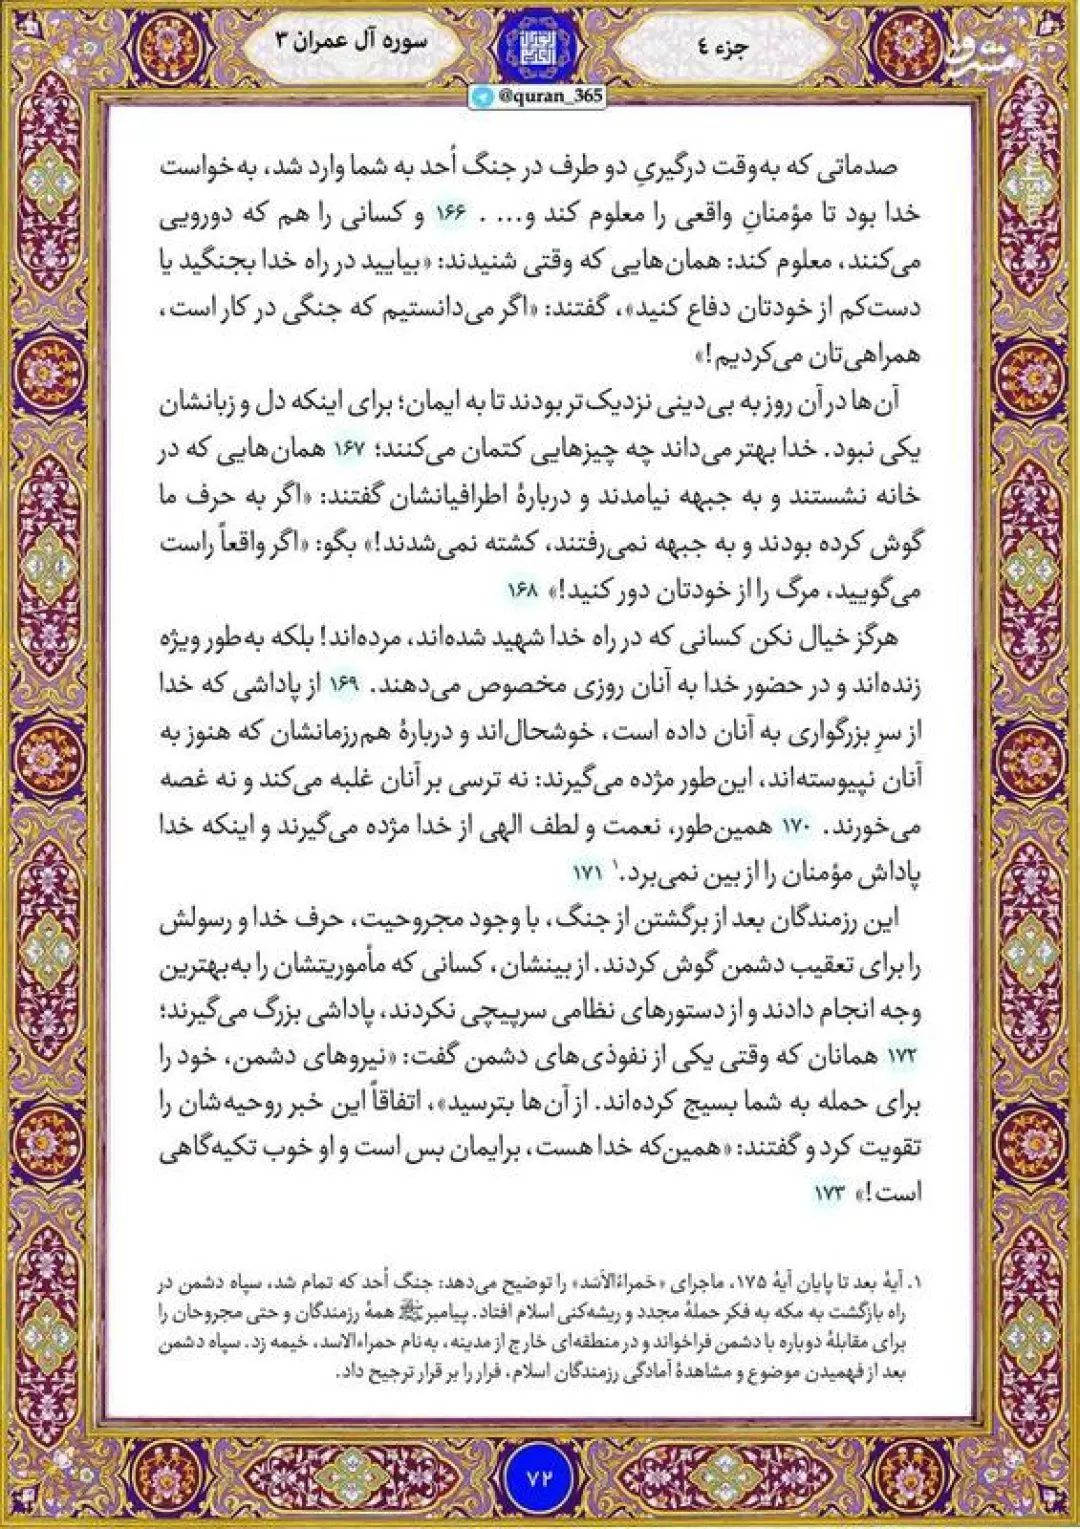 جزء ٤
سوره آل عمران ٣
@quran_365
صدماتی که به‌وقت درگیریِ دو طرف در جنگ اُحد به شما وارد شد، به‌خواست
خدا بود تا مؤمنانِ واقعی را معلوم کند و... . ۱۶۶ و کسانی را هم که دورویی
می‌کنند، معلوم کند: همان‌هایی که وقتی شنیدند: «بیایید در راه خدا بجنگید یا
دست‌کم از خودتان دفاع کنید»، گفتند: «اگر می‌دانستیم که جنگی در کار است،
همراهی‌تان می‌کردیم!»
آن‌ها در آن روز به بی‌دینی نزدیک‌تر بودند تا به ایمان؛ برای اینکه دل و زبانشان
یکی نبود. خدا بهتر می‌داند چه چیزهایی کتمان می‌کنند؛ ۱۶۷ همان‌هایی که در
خانه نشستند و به جبهه نیامدند و دربارهٔ اطرافیانشان گفتند: «اگر به حرف ما
گوش کرده بودند و به جبهه نمی‌رفتند، کشته نمی‌شدند!» بگو: «اگر واقعاً راست
می‌گویید، مرگ را از خودتان دور کنید!» ۱۶۸
هرگز خیال نکن کسانی که در راه خدا شهید شده‌اند، مرده‌اند! بلکه به‌طور ویژه
زنده‌اند و در حضور خدا به آنان روزی مخصوص می‌دهند. ۱۶۹ از پاداشی که خدا
از سرِ بزرگواری به آنان داده است، خوشحال‌اند و دربارهٔ هم‌رزمانشان که هنوز به
آنان نپیوسته‌اند، این‌طور مژده می‌گیرند: نه ترسی بر آنان غلبه می‌کند و نه غصه
می‌خورند. ۱۷۰ همین‌طور، نعمت و لطف الهی از خدا مژده می‌گیرند و اینکه خدا
پاداش مؤمنان را از بین نمی‌برد.۱ ۱۷۱
این رزمندگان بعد از برگشتن از جنگ، با وجود مجروحیت، حرف خدا و رسولش
را برای تعقیب دشمن گوش کردند. از بینشان، کسانی که مأموریتشان را به‌بهترین
وجه انجام دادند و از دستورهای نظامی سرپیچی نکردند، پاداشی بزرگ می‌گیرند؛
۱۷۲ همانان که وقتی یکی از نفوذی‌های دشمن گفت: «نیروهای دشمن، خود را
برای حمله به شما بسیج کرده‌اند. از آن‌ها بترسید»، اتفاقاً این خبر روحیه‌شان را
تقویت کرد و گفتند: «همین‌که خدا هست، برایمان بس است و او خوب تکیه‌گاهی
است!» ۱۷۳
۱. آیهٔ بعد تا پایان آیهٔ ۱۷۵، ماجرای «حَمراءُالاَسَد» را توضیح می‌دهد: جنگ اُحد که تمام شد، سپاه دشمن در
راه بازگشت به مکه به فکر حملهٔ مجدد و ریشه‌کنی اسلام افتاد. پیامبرﷺ همهٔ رزمندگان و حتی مجروحان را
برای مقابلهٔ دوباره با دشمن فراخواند و در منطقه‌ای خارج از مدینه، به‌نام حمراءالاسد، خیمه زد. سپاه دشمن
بعد از فهمیدن موضوع و مشاهدهٔ آمادگی رزمندگان اسلام، فرار را بر قرار ترجیح داد.
۷۲